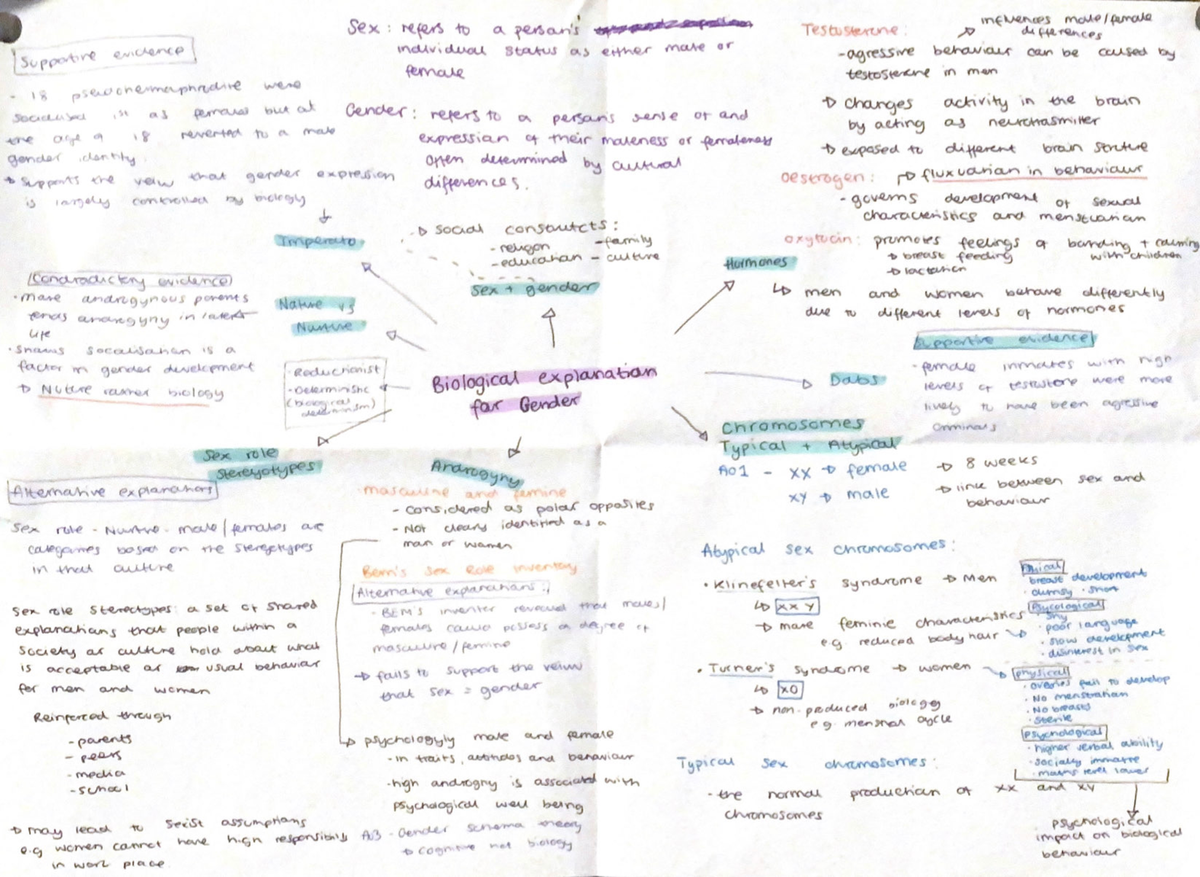 Supportive evidence
- 18 pseudohermaphrodite were
socialised 1st as females but at
the age of 18 reverted to a male
gender identity.
↳ supports the veiw that gender expression
is largely controlled by biology
Imperato
Sex: refers to a person's
individual status as either male or
female
Gender: refers to a persons sense of and
expression of their maleness or femaleness
often determined by cultural
differences.
↳ social constutcts:
- religon - family
- education - culture
Sex + gender
Testosterone: ↗ influences male/female
differences
- agressive behaviour can be caused by
testosterone in men
↳ changes activity in the brain
by acting as neurotrasmitter
↳ exposed to different brain struture
Oestrogen: ↱ fluxuarian in behaviour
- governs development of sexual
characteristics and menstuarian
Oxytocin: promotes feelings of bonding +
↳ breast feeding with children
↳ lactation
Hormones
↳ men and women behave differently
due to different levels of hormones
Condradictory evidence
• more androgynous parents
androgyny in later
life
• shows socialisation is a
factor in gender development
↳ Nuture rather biology
Nature vs
Nurture
• Reductionist
• Deterministic
(biological
determinism)
Biological explanation
for Gender
Dabs
Supportive evidence
- female inmates with high
levels of testostore were more
lively to have been agressive
criminals
Chromosomes
Typical + Atypical
AO1 - XX → female
XY → male
→ 8 weeks
→ link between sex and
behaviour
Atypical sex chromosomes:
• Klinefelter's syndrome → Men
↳ XXY
→ more feminie characteristics
e.g. reduced body hair
Physical
breast development
• clumsy • short
Psycological
• shy
• poor language
• slow development
• disinterest in sex
• Turner's syndrome → women
↳ XO
→ non-produced biology
e.g. menstral cycle
physical
• overies fail to develop
• No menstration
• No breasts
• sterile
psychological
• higher verbal ability
• socially immatre
• maths level lower
psychological
impact on biological
behaviour
Typical sex chromosomes:
• the normal production of XX and XY
chromosomes
Sex role
Stereotypes
Alternative explanation
Sex role - Nurture - male/females are
categories based on the stereotypes
in that culture
Sex role stereotypes: a set of shared
explanations that people within a
society or culture hold about what
is acceptable or usual behavior
for men and women
Reinforced through
- parents
- peers
- media
- school
→ may lead to sexist assumptions
e.g women cannot have high responsibly
in work place.
Androgyny
masculine and femine
- considered as polar opposites
- Not clearly identified as a
man or women
Bem's Sex Role Inventory
Alternative explanations:
• BEM's inventer revealed that males/
females could possess a degree of
masculine/femine
→ fails to support the veiw
that sex = gender
→ psychologyly male and female
- in traits, and behaviour
- high androgny is associated with
psychological well being
AO3 - Gender schema theory
→ cognitive not biology